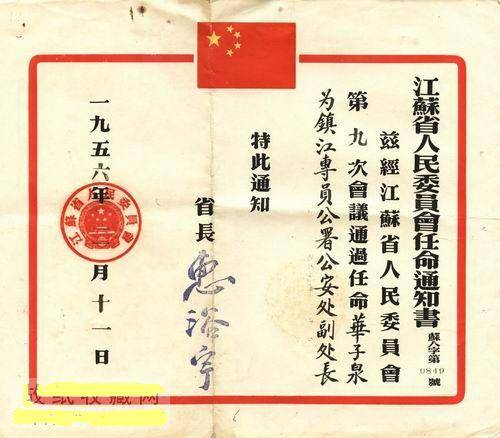 江蘇省人民委員會任命通知書
蘇人字第9849號
茲經江蘇省人民委員會
第九次會議通過任命華子泉
为鎮江專員公署公安处副处長
特此通知
省長 惠浴宇
一九五六年一月十一日
江蘇省人民委員會
纸收藏网